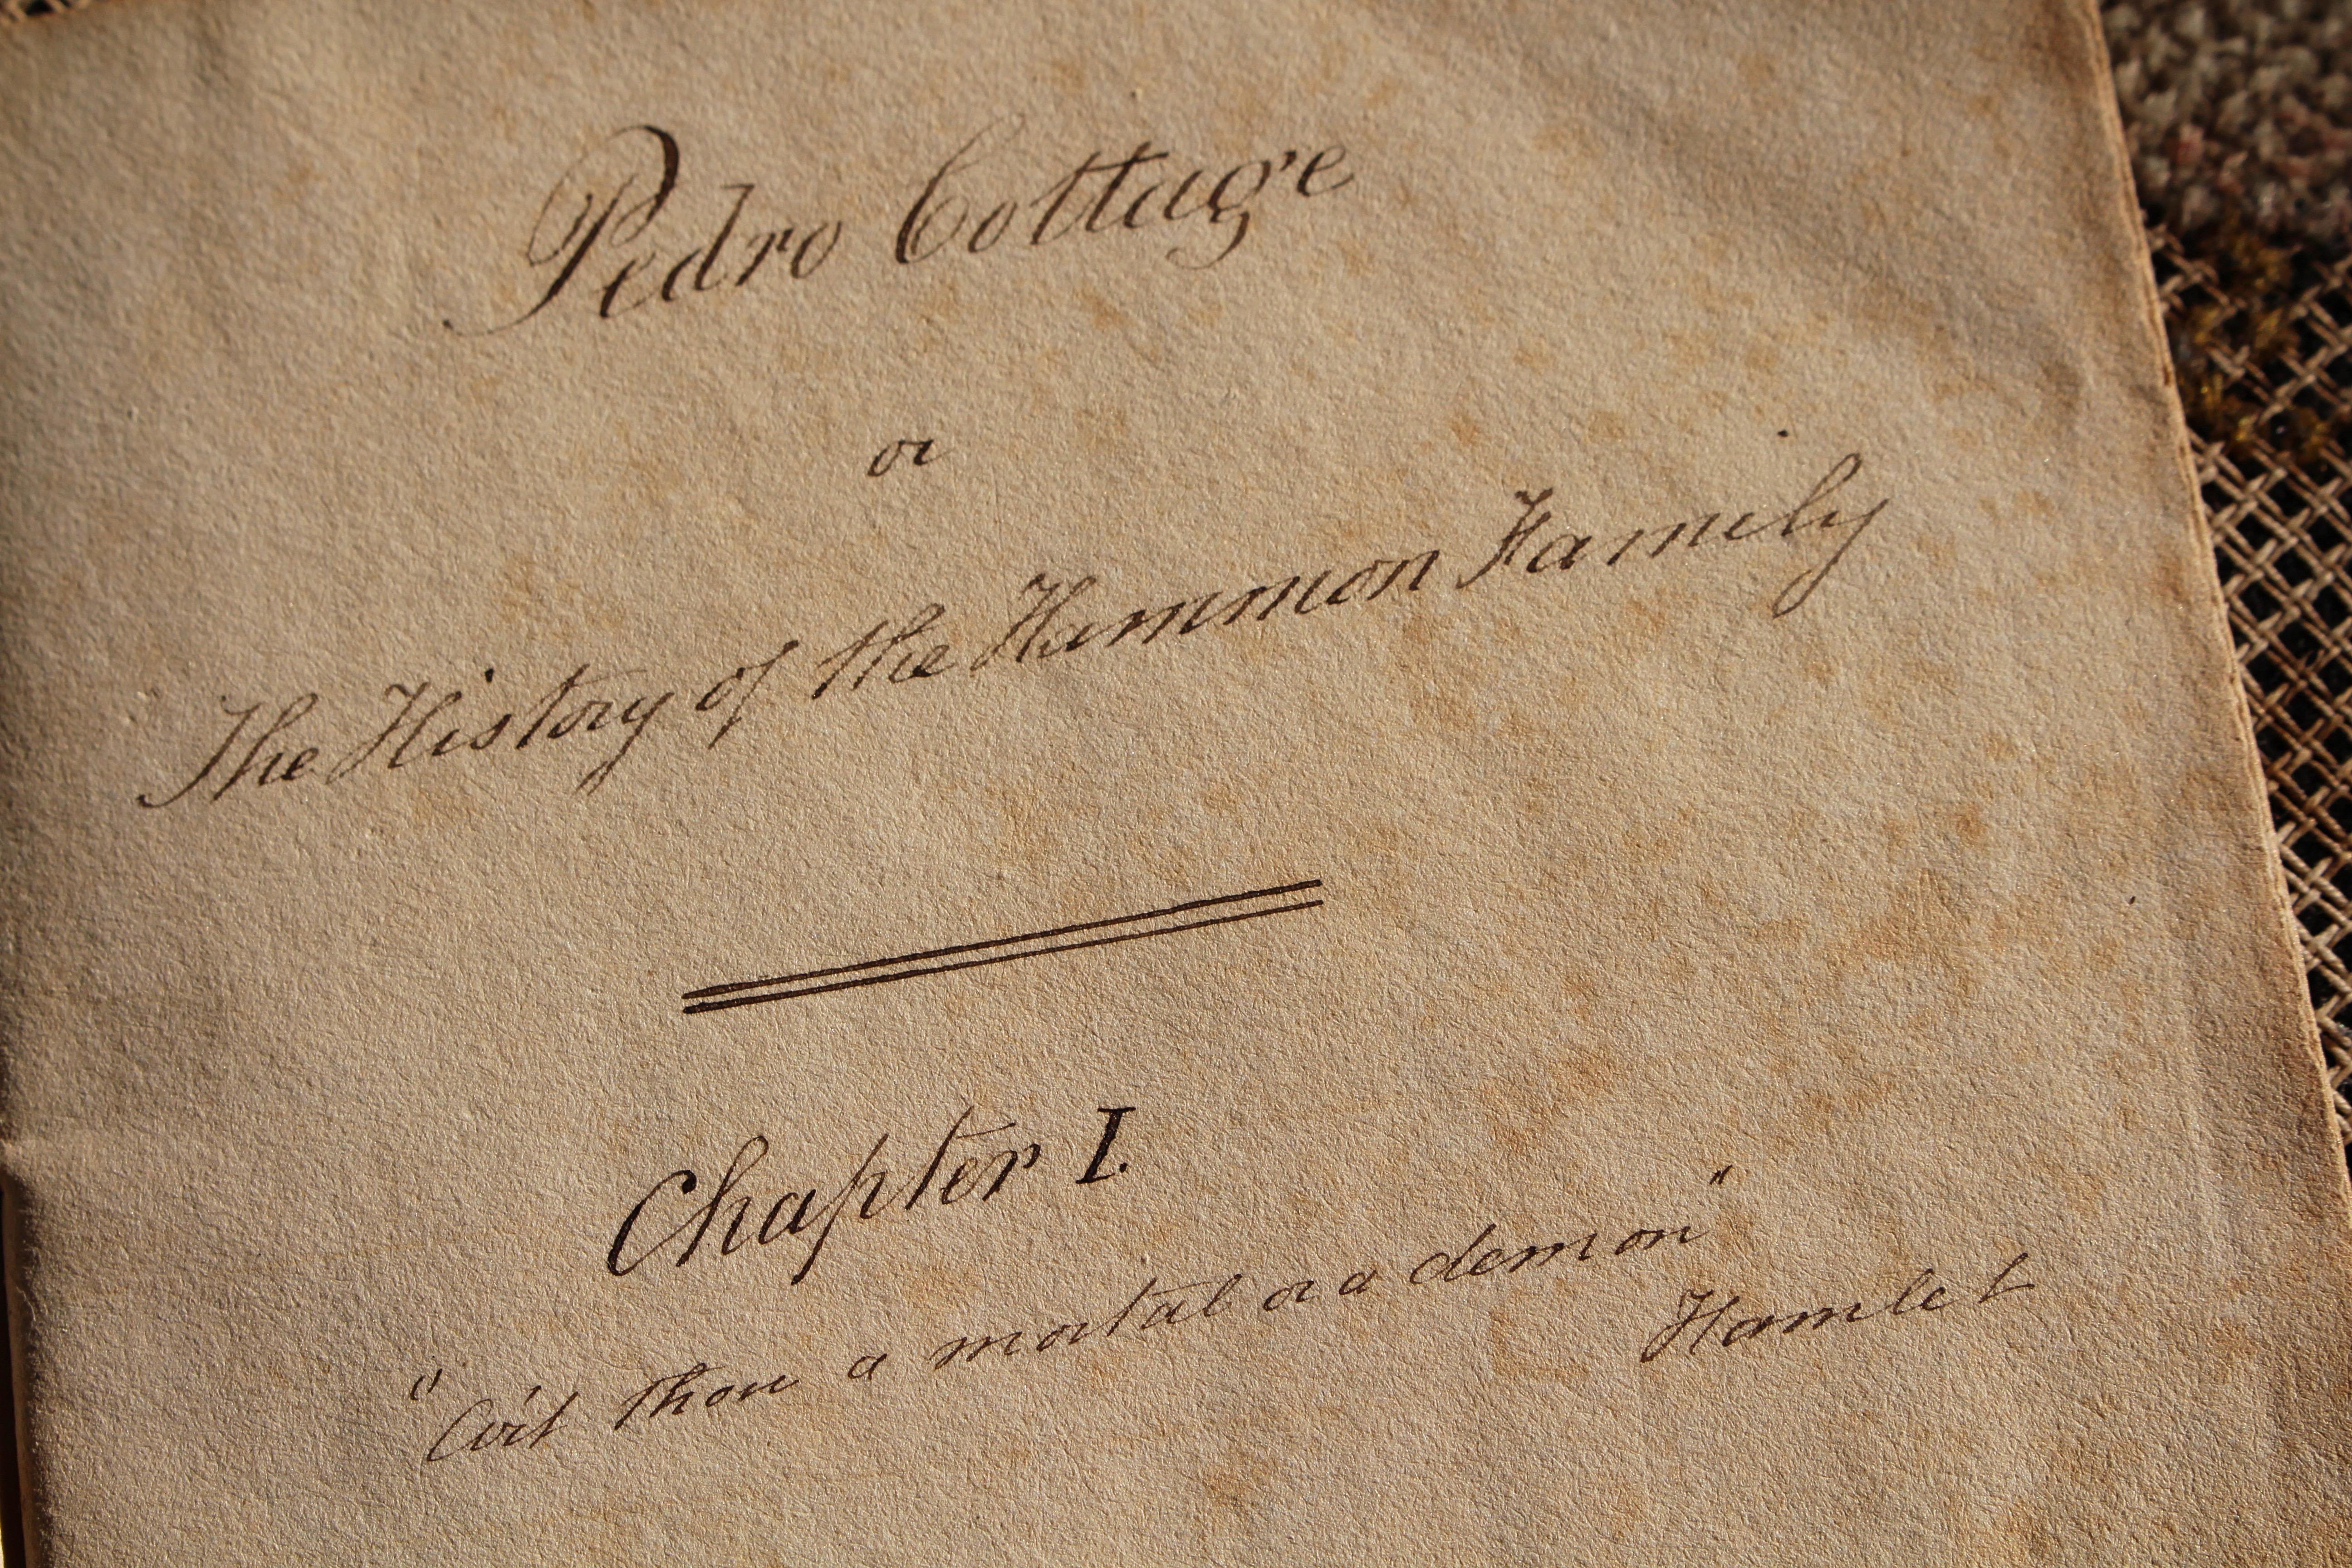 Pedro Cottage
or
The History of the Hammon Family
Chapter I.
" thou a mortal or a demon"
Hamlet